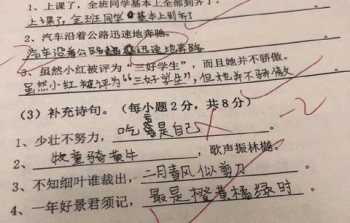 1、上课了，全班同学基本上全部到齐了。
上课了，全班同学基本上到齐了
2、汽车沿着公路迅速地奔驰。
汽车沿着公路迅速地奔驰
3、虽然小红被评为“三好学生”，而且她并不骄傲。
虽然小红被评为“三好学生”，但她并不骄傲
-2
（3）补充诗句。（每小题2分，共8分）
1、少壮不努力，吃亏是自己。
2、牧童骑黄牛，歌声振林樾。
3、不知细叶谁裁出，二月春风似剪刀。
4、一年好景君须记，最是橙黄橘绿时。